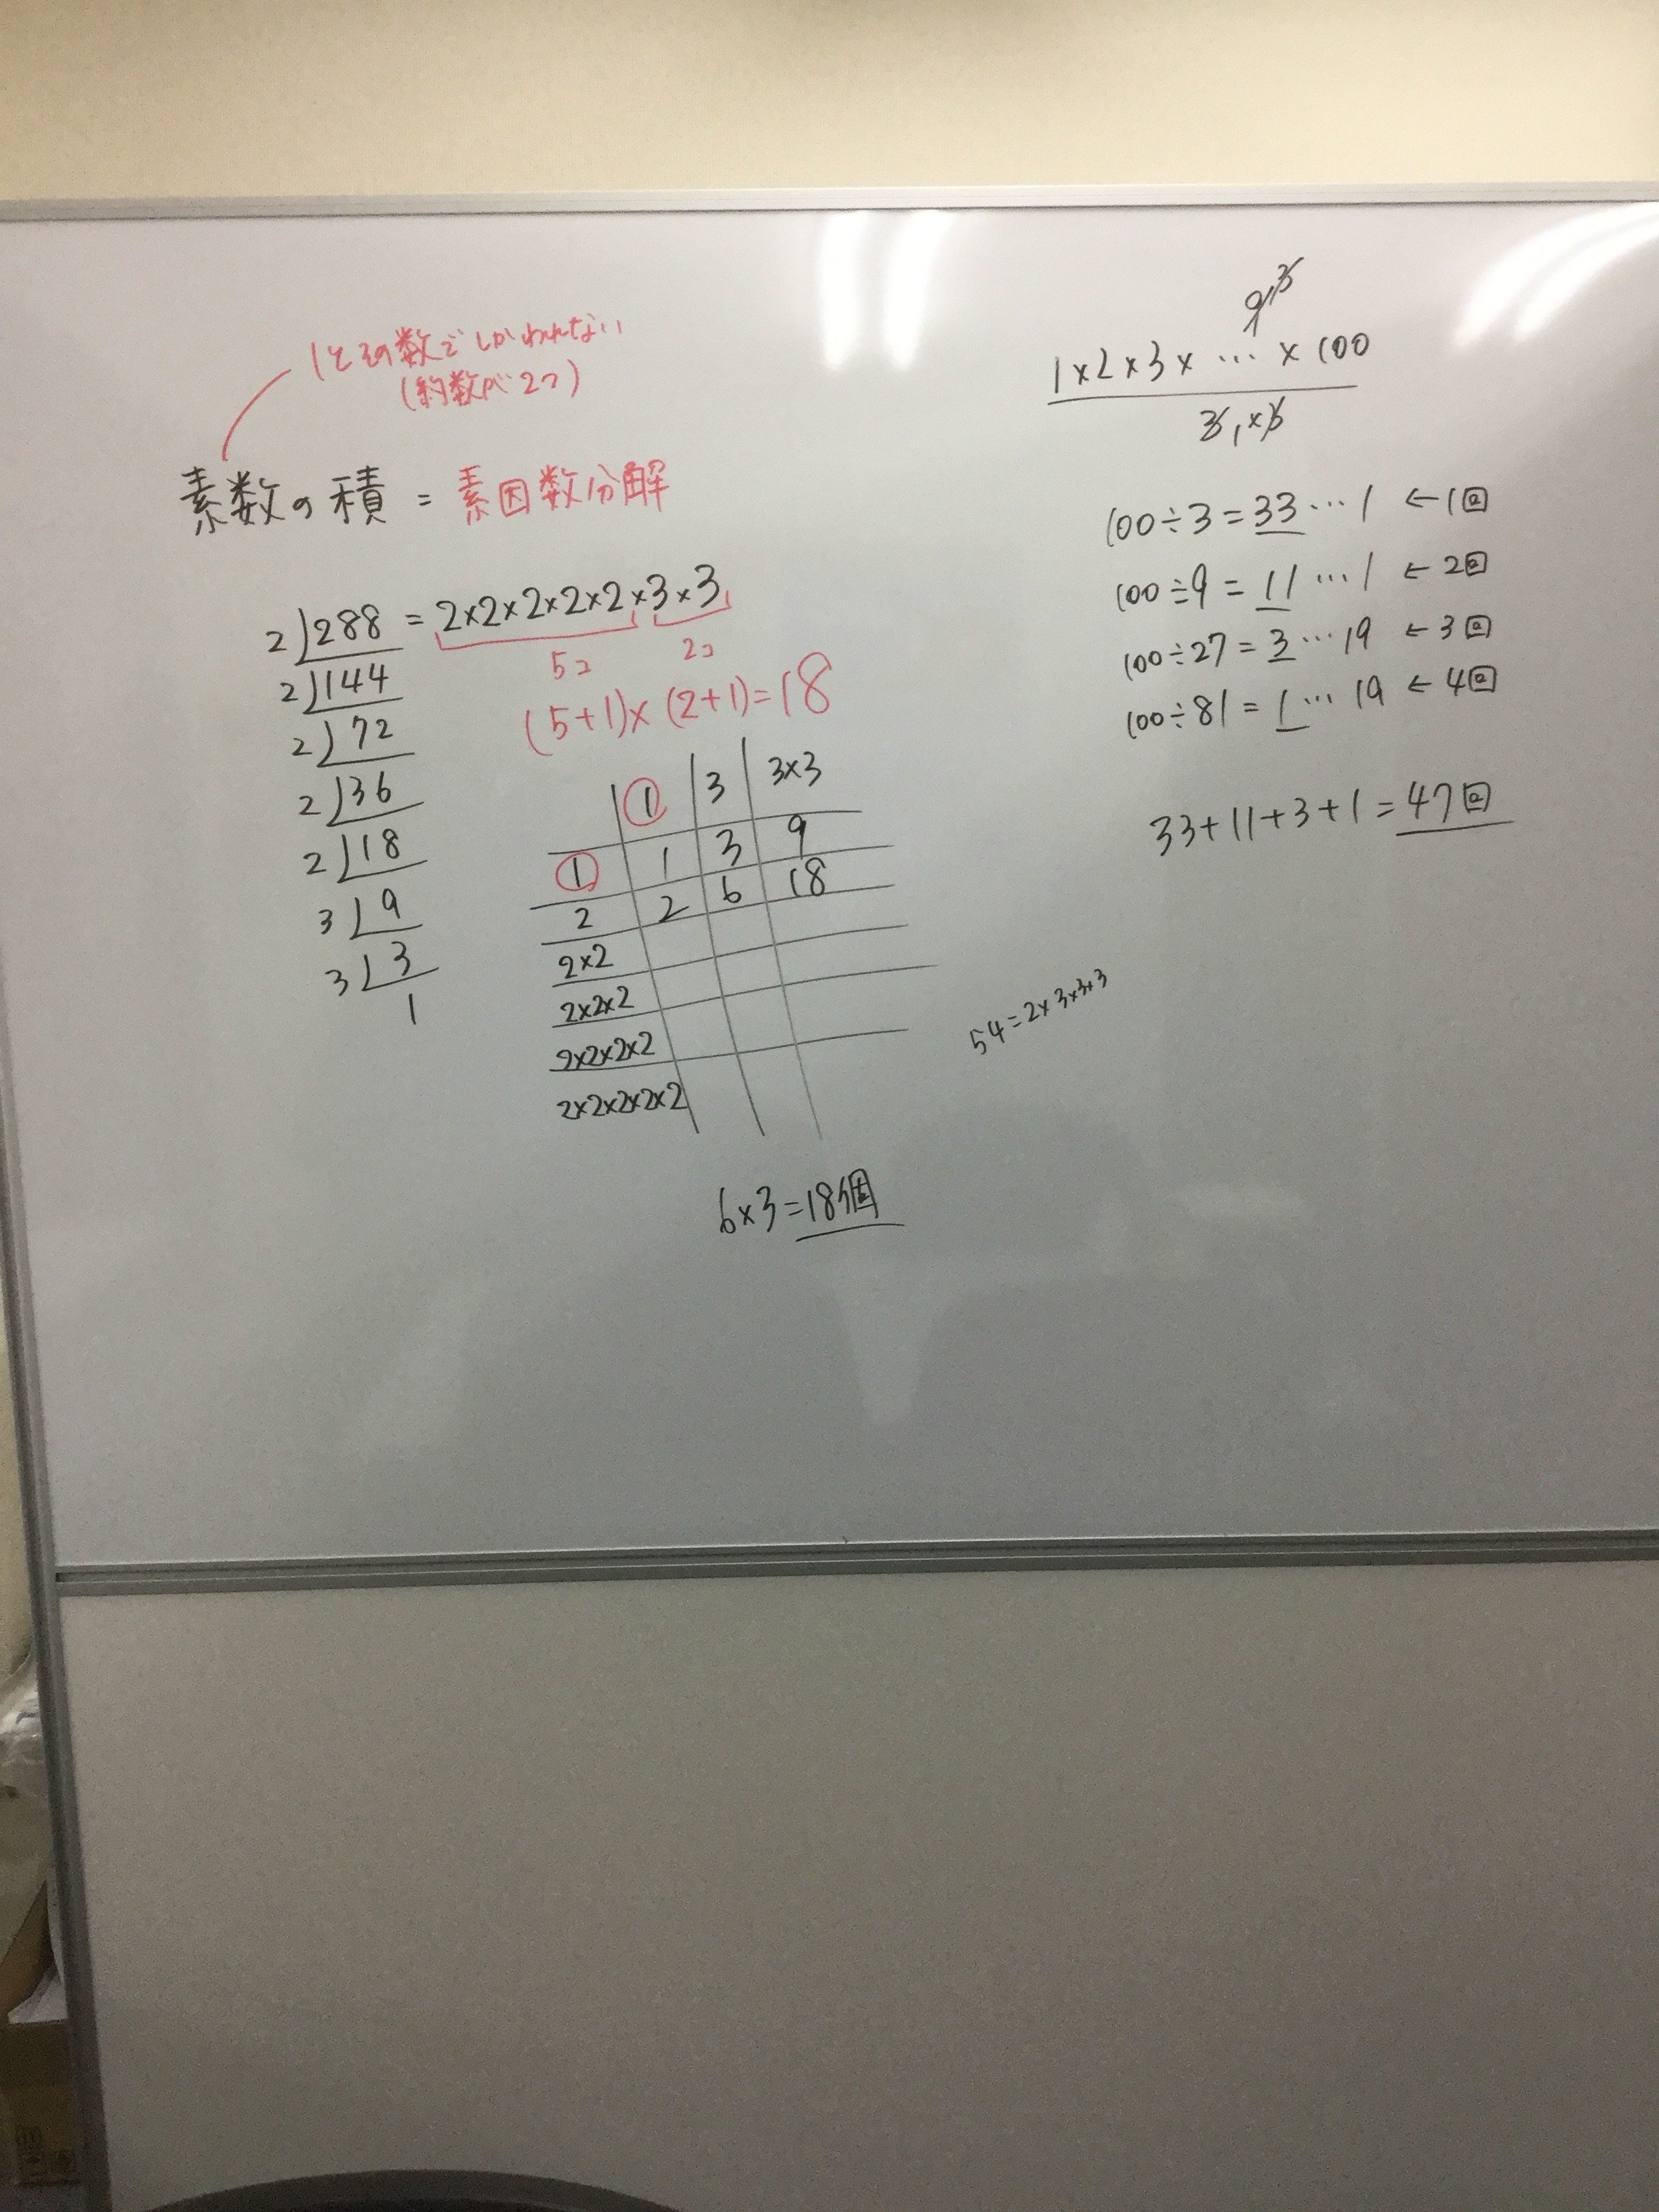 1とその数でしかわれない
(約数が2コ)
素数の積 = 素因数分解
2)288 = 2×2×2×2×2×3×3
5コ 2コ
2)144
(5+1)×(2+1)=18
2)72
2)36
2)18
3)9
3)3
1
1 3 3×3
1 1 3 9
2 2 6 18
2×2
2×2×2
2×2×2×2
2×2×2×2×2
6×3=18個
54=2×3×3×3
9 3
1×2×3× … ×100
3 1 ×3
100÷3=33…1 ←1回
100÷9=11…1 ←2回
100÷27=3…19 ←3回
100÷81=1…19 ←4回
33+11+3+1=47回